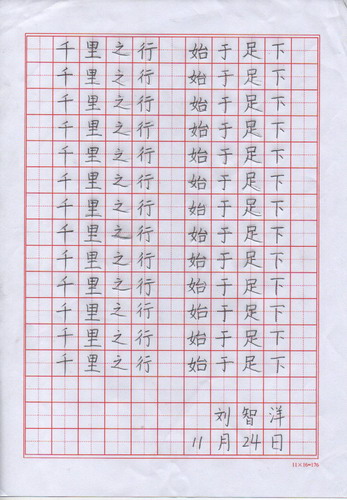 千里之行 始于足下
千里之行 始于足下
千里之行 始于足下
千里之行 始于足下
千里之行 始于足下
千里之行 始于足下
千里之行 始于足下
千里之行 始于足下
千里之行 始于足下
千里之行 始于足下
千里之行 始于足下
千里之行 始于足下
千里之行 始于足下
刘智洋
11月24日
11×16=176